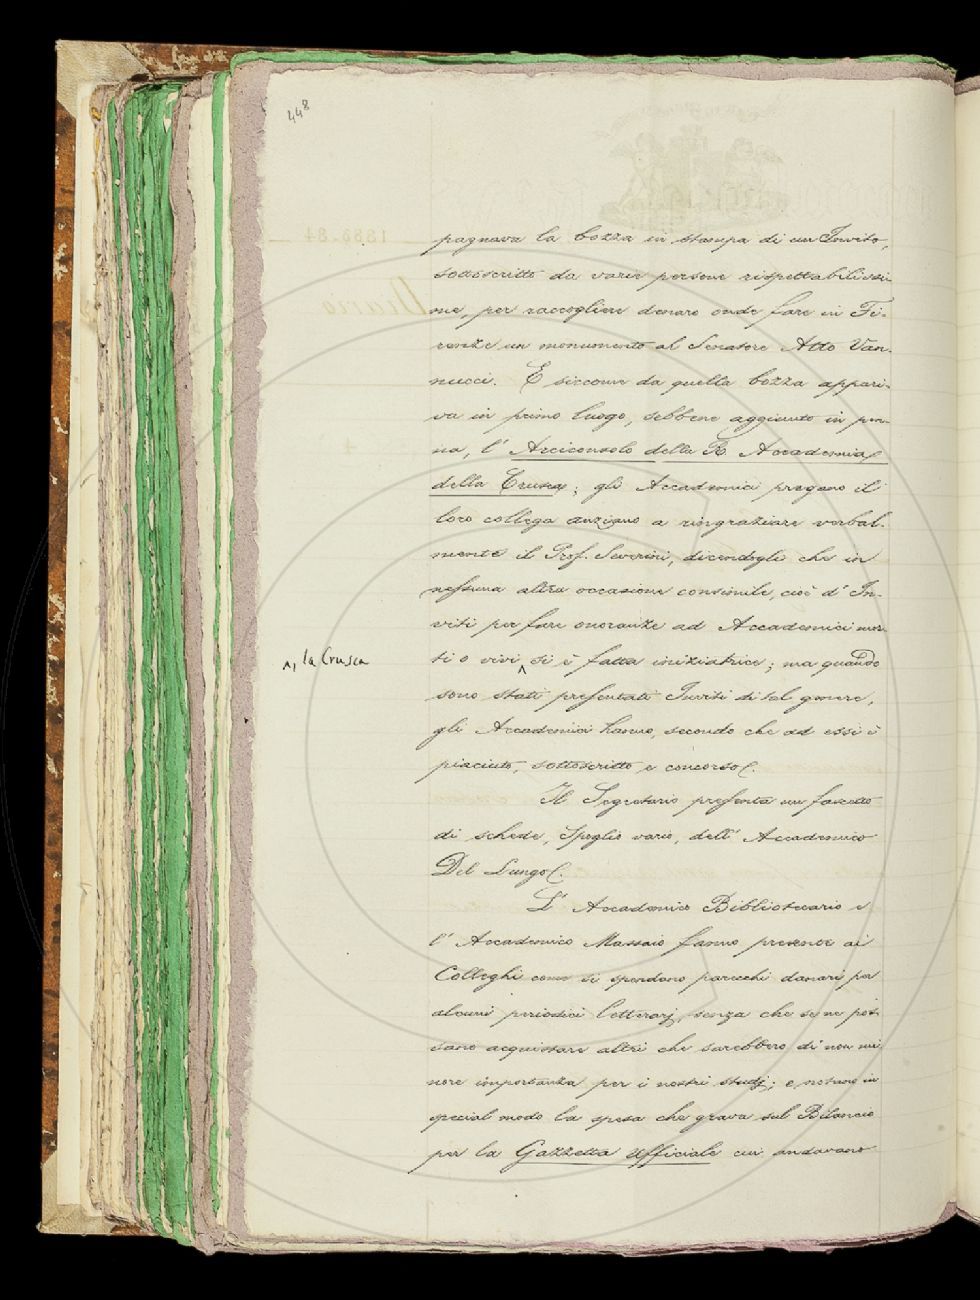 448
pagnava la bozza in stampa di un Invito,
sottoscritto da varie persone rispettabilissi-
me, per raccogliere denaro onde fare in Fi-
renze un monumento al Senatore Atto Van-
nucci. E siccome da quella bozza appari-
va in primo luogo, sebbene aggiunto in pen-
na, l'Arciconsolo della R. Accademia
della Crusca; gli Accademici pregano il
loro collega anziano a ringraziare verbal-
mente il Prof. Severini, dicendogli che in
nessuna altra occasione consimile, cioè d'In-
viti per fare onoranze ad Accademici mor-
ti o vivi si è fatta iniziatrice; ma quando
^, la Crusca
sono stati presentati Inviti di tal genere,
gli Accademici hanno, secondo che ad essi è
piaciuto, sottoscritto e concorso.
Il Segretario presenta un fascetto
di schede, Spoglio vario, dell'Accademico
Del Lungo.
L'Accademico Bibliotecario e
l'Accademico Massaio fanno presente ai
Colleghi come si spendano parecchi danari per
alcuni periodici letterarj, senza che se ne pos-
sano acquistare altri che sarebbero di non mi-
nore importanza per i nostri studj; e notano in
special modo la spesa che grava sul Bilancio
per la Gazzetta Ufficiale cui andavano
1883-84
Diario